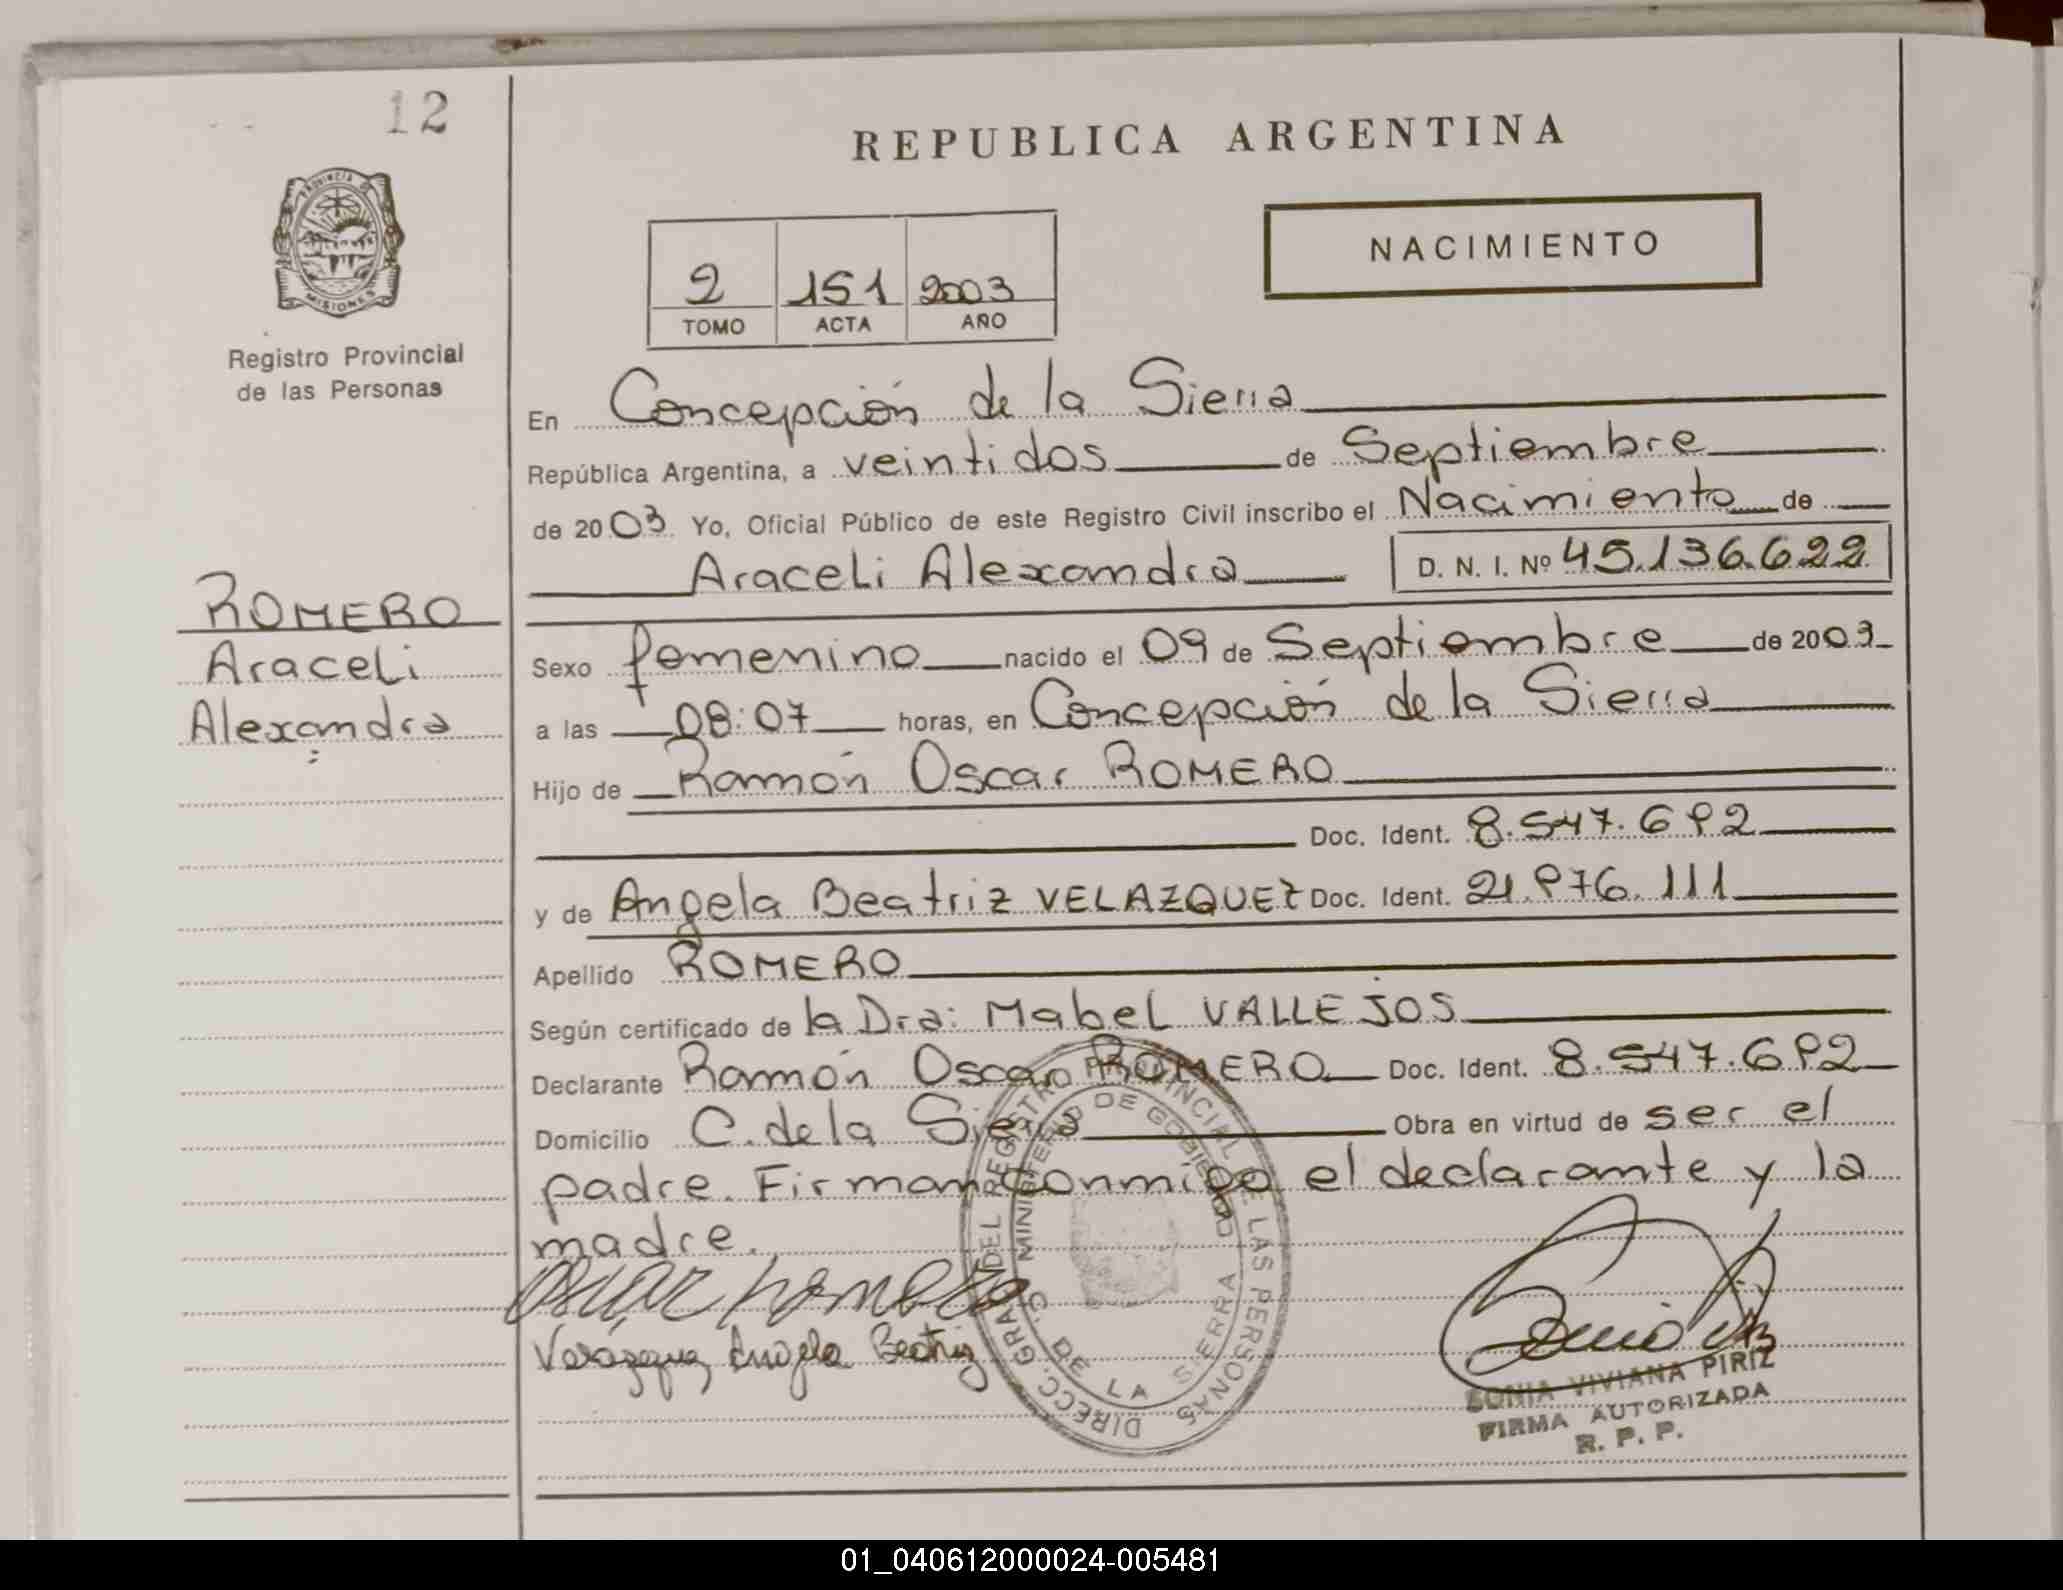 12
PROVINCIA DE
MISIONES
Registro Provincial
de las Personas
REPUBLICA ARGENTINA
NACIMIENTO
2 151 2003
TOMO ACTA AÑO
En Concepción de la Sierra
República Argentina, a veintidos de Septiembre
de 2003 Yo, Oficial Público de este Registro Civil inscribo el Nacimiento de
Araceli Alexandra D. N. I. Nº 45.136.622
ROMERO
Araceli
Alexandra
Sexo femenino nacido el 09 de Septiembre de 2003
a las 08:07 horas, en Concepción de la Sierra
Hijo de Ramón Oscar ROMERO
Doc. Ident. 8.547.692
y de Angela Beatriz VELAZQUEZ Doc. Ident. 21.976.111
Apellido ROMERO
Según certificado de la Dra: Mabel VALLEJOS
Declarante Ramón Oscar ROMERO Doc. Ident. 8.547.692
Domicilio C. de la Sierra Obra en virtud de ser el
padre. Firman conmigo el declarante y la
madre.
Oscar Romero
Angela Beatriz
DIRECC. GRAL. DEL REGISTRO PROVINCIAL DE LAS PERSONAS
MINISTERIO DE GOBIERNO
C. DE LA SIERRA
SONIA VIVIANA PIRIZ
FIRMA AUTORIZADA
R. P. P.
01_040612000024-005481